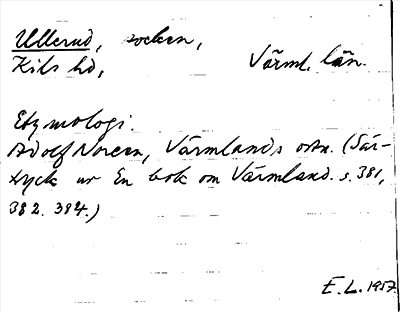 Ullerud, socken,
Kils hd, Värml. län.
Etymologi.
Adolf Noreen, Värmlands ortn. (Sär-
tryck ur En bok om Värmland. s. 381,
382. 384.)
E. L. 1957.